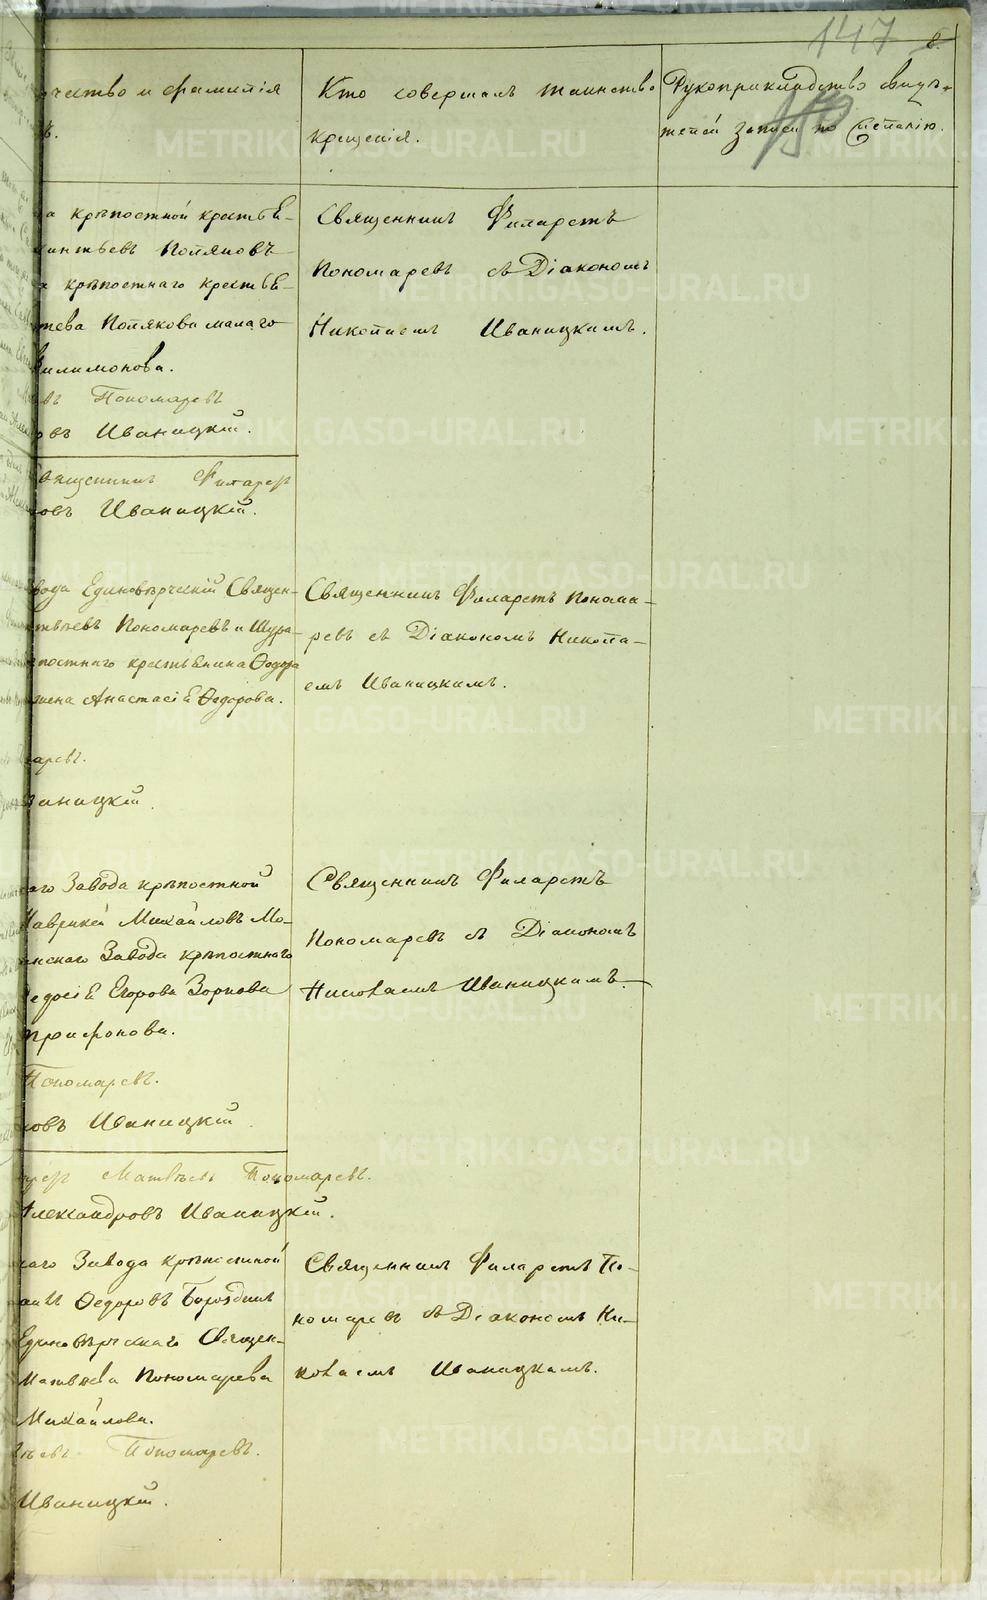 147
чество и фамилія
Кто совершалъ таинство
крещенія.
Рукоприкладство свидѣ-
телей записи по желанію.
крѣпостной крестья-
Поляковъ
крѣпостнаго крестья-
Полякова малаго
Филимонова.
Пономаревъ
Иваницкій.
Священникъ Филаретъ
Пономаревъ съ Діакономъ
Николаемъ Иваницкимъ.
Священникъ Филарет
Иваницкій.
вода Единовѣрческій Священ-
Пономаревъ и Шура-
постнаго крестьянина Ѳедора
жена Анастасія Ѳедорова.
Священникъ Филаретъ Понома-
ревъ съ Діакономъ Никола-
емъ Иваницкимъ.
аревъ.
ваницкій.
каго Завода крѣпостной
Маврикей Михайловъ Мо-
нскаго Завода крѣпостнаго
Ѳедосія Егорова Зорнова
Трифонова.
Пономаревъ.
ровъ Иваницкій.
Священникъ Филаретъ
Пономаревъ съ Діакономъ
Николаемъ Иваницкимъ.
Матвѣевъ Пономаревъ.
Александровъ Иваницкій.
каго Завода крѣпостной
Ѳедоровъ Бороздинъ
Единовѣрческаго Священ-
Матвѣева Пономарева
Михайлова.
Пономаревъ.
Иваницкій.
Священникъ Филаретъ По-
номаревъ съ Діакономъ Ни-
колаемъ Иваницкимъ.
METRIKI.GASO-URAL.RU